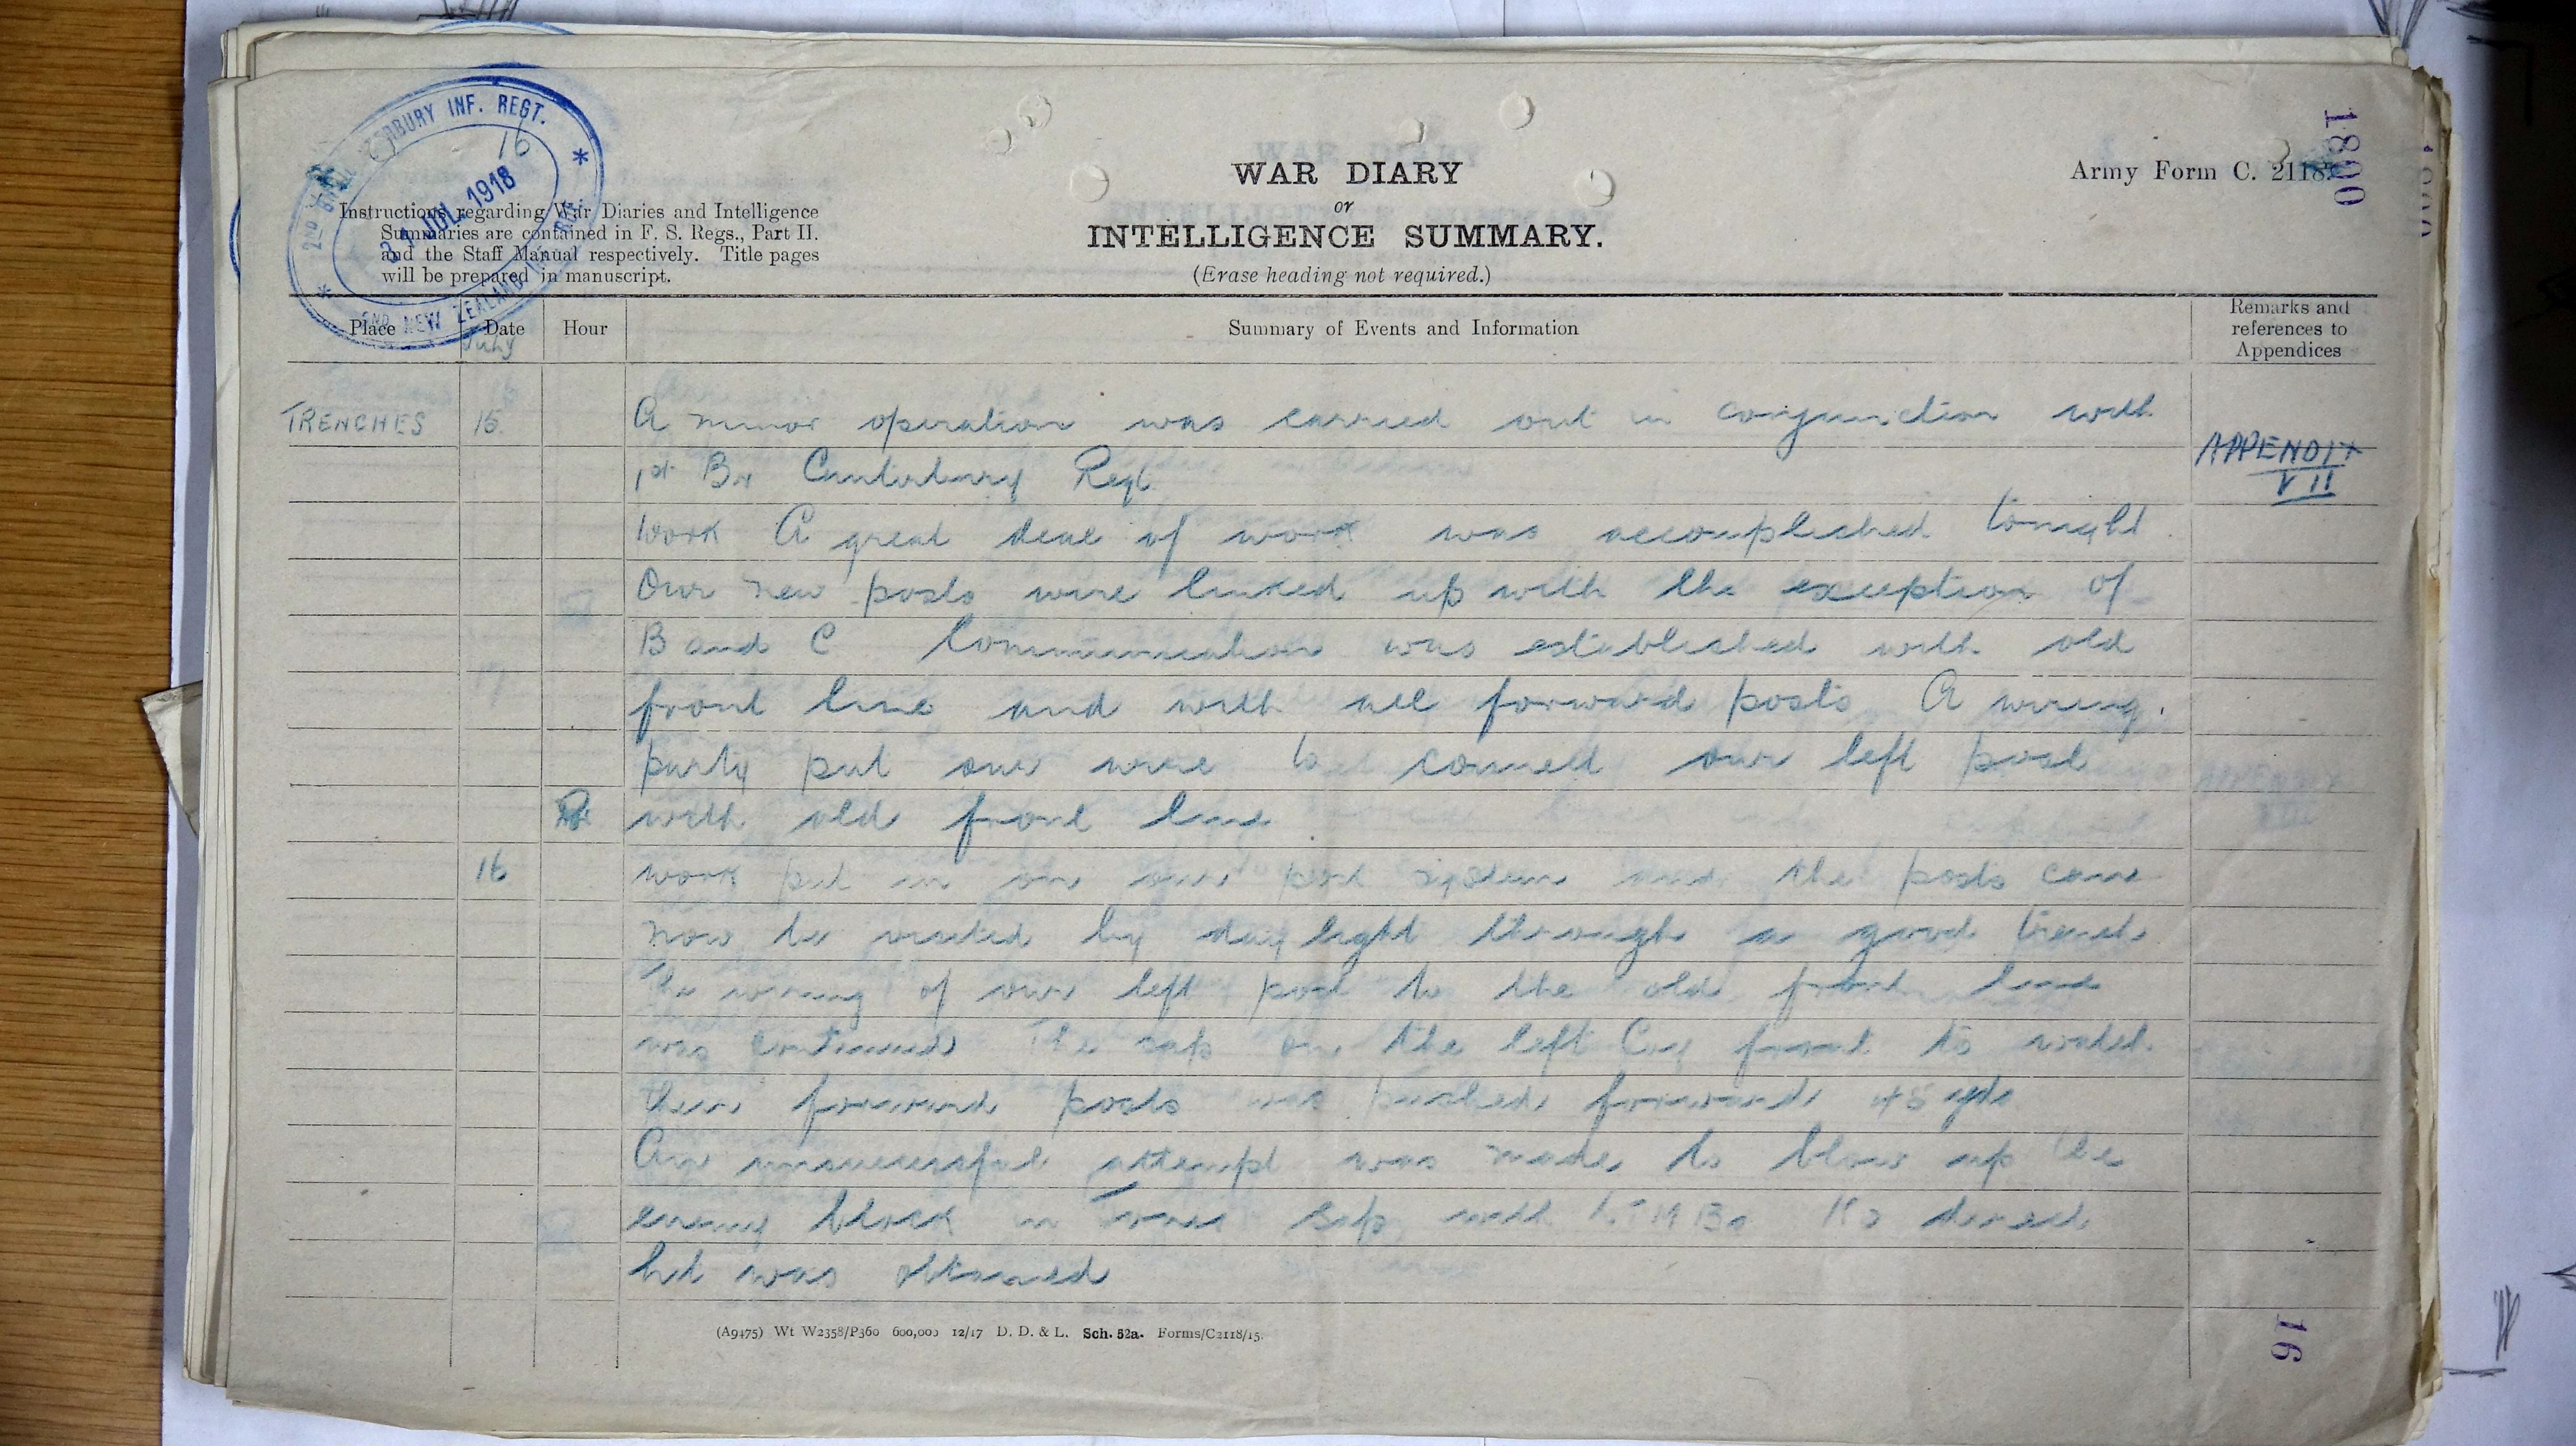 2ND BN. CANTERBURY INF. REGT.
16
31 JUL 1918
2ND NEW ZEALAND INF. BDE.
Instructions regarding War Diaries and Intelligence
Summaries are contained in F. S. Regs., Part II.
and the Staff Manual respectively. Title pages
will be prepared in manuscript.
WAR DIARY
or
INTELLIGENCE SUMMARY.
(Erase heading not required.)
Army Form C. 2118.
1800
Place Date Hour Summary of Events and Information Remarks and references to Appendices
July
TRENCHES 15. A minor operation was carried out in conjunction with
1st Bn Canterbury Regt. APPENDIX VII
Work A great deal of work was accomplished tonight.
Our new posts were linked up with the exception of
B and C Communication was established with old
front line and with all forward posts A wiring
party put out wire to connect our left post
with old front line
16 work put in on our post system and the posts can
now be visited by day light through a good trench
The wiring of our left post to the old front line
was continued The sap on the left Coy front to
their forward posts was pushed forward 45 yds
An unsuccessful attempt was made to blow up the
enemy block in sap with No direct
hit was obtained
(A9475) Wt W2358/P360 600,000 12/17 D. D. & L. Sch. 52a. Forms/C2118/15.
16